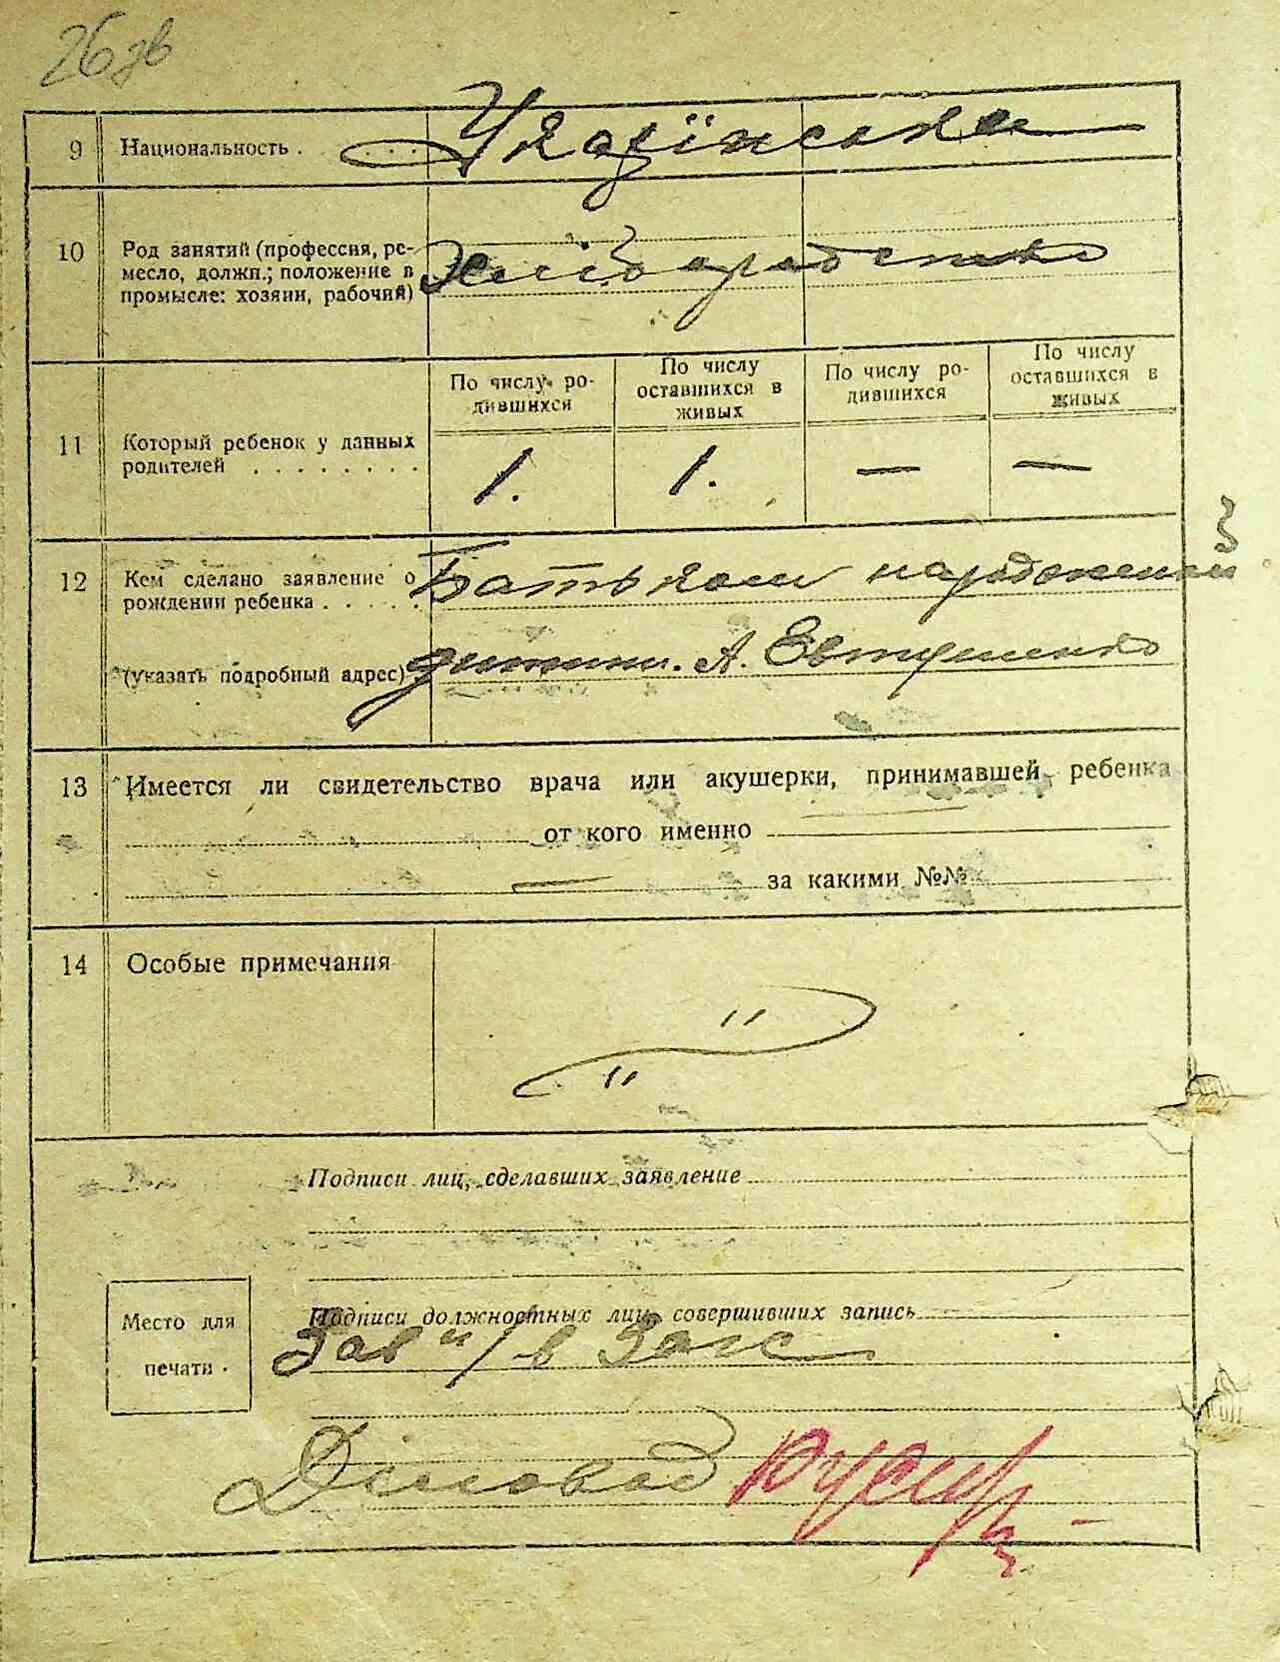 26 зв
9 Национальность . Українська
10 Род занятий (профессия, ре-
месло, должн.; положение в
промысле: хозяин, рабочий)
Хлiборобство
По числу ро-
дившихся
По числу
оставшихся в
живых
По числу ро-
дившихся
По числу
оставшихся в
живых
11 Который ребенок у данных
родителей . . . . . . . .
1. 1. — —
12 Кем сделано заявление о
рождении ребенка . . . . .
Батьком народженной
(указать подробный адрес)
дитини. А. Евтушенко
13 Имеется ли свидетельство врача или акушерки, принимавшей ребенка
от кого именно
— за какими №№
14 Особые примечания
" "
Подписи лиц, сделавших заявление
Место для
печати .
Подписи должностных лиц, совершивших запись
Зав н/в Загс
Діловод